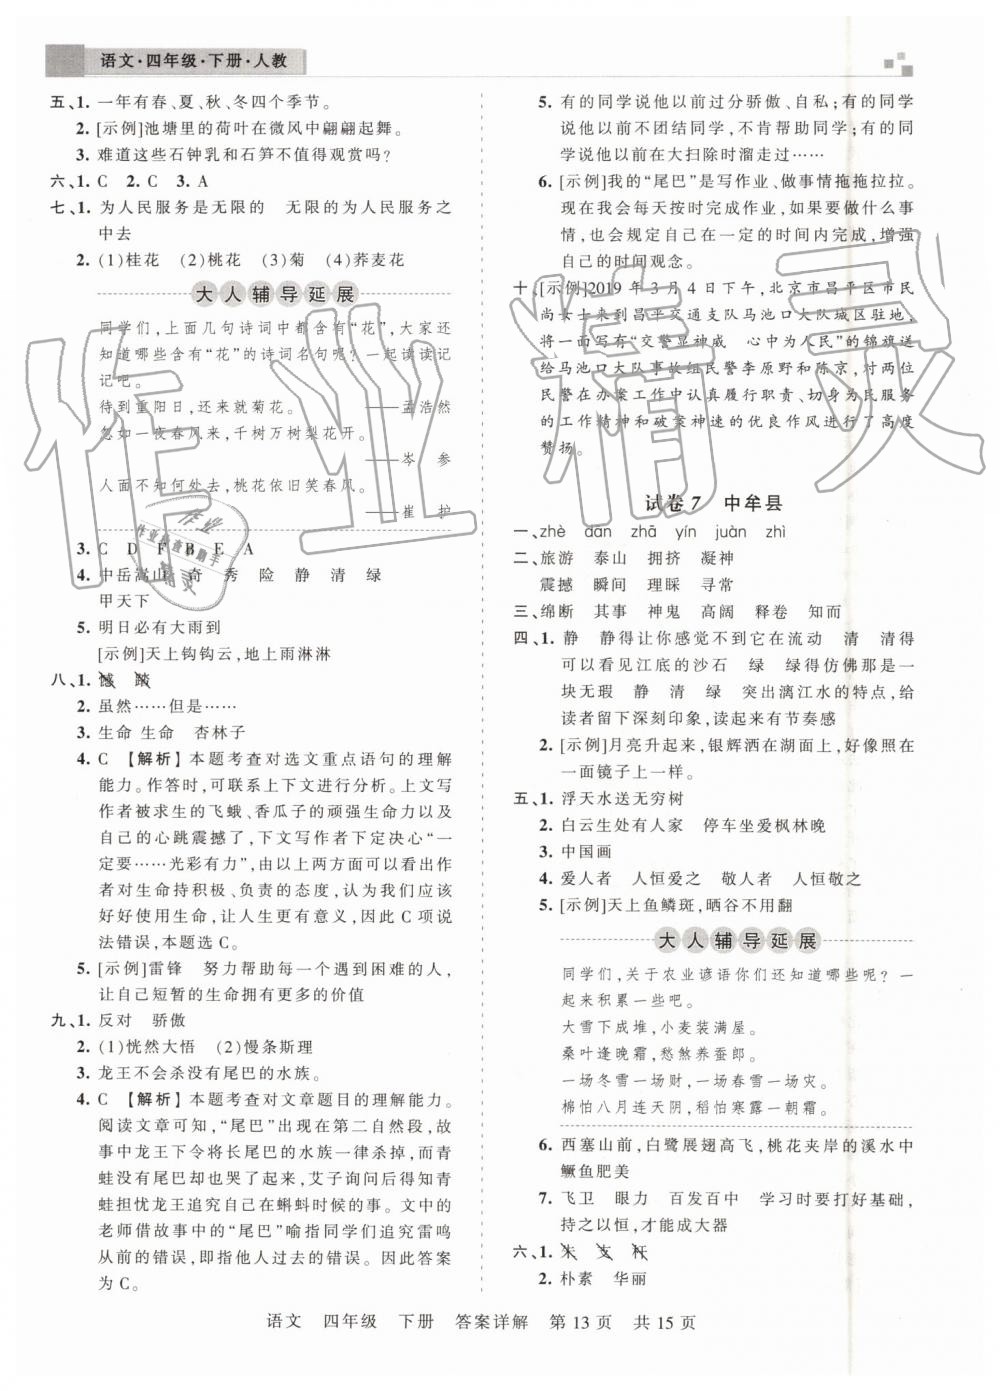 语文·四年级·下册·人教
五、1. 一年有春、夏、秋、冬四个季节。
2. [示例]池塘里的荷叶在微风中翩翩起舞。
3. 难道这些石钟乳和石笋不值得观赏吗?
六、1. C 2. C 3. A
七、1. 为人民服务是无限的 无限的为人民服务之
中去
2. (1)桂花 (2)桃花 (3)菊 (4)荞麦花
大人辅导延展
同学们,上面几句诗词中都含有“花”,大家还
知道哪些含有“花”的诗词名句呢?一起读读记
记吧。
待到重阳日,还来就菊花。 ——孟浩然
忽如一夜春风来,千树万树梨花开。
——岑 参
人面不知何处去,桃花依旧笑春风。
——崔 护
3. C D F B E A
4. 中岳嵩山 奇 秀 险 静 清 绿
甲天下
5. 明日必有大雨到
[示例]天上钩钩云,地上雨淋淋
八、1. 憾
2. 虽然……但是……
3. 生命 生命 杏林子
4. C 【解析】本题考查对选文重点语句的理解
能力。作答时,可联系上下文进行分析。上文写
作者被求生的飞蛾、香瓜子的顽强生命力以及
自己的心跳震撼了,下文写作者下定决心“一
定要……光彩有力”,由以上两方面可以看出作
者对生命持积极、负责的态度,认为我们应该
好好使用生命,让人生更有意义,因此 C 项说
法错误,本题选 C。
5. [示例]雷锋 努力帮助每一个遇到困难的人,
让自己短暂的生命拥有更多的价值
九、1. 反对 骄傲
2. (1)恍然大悟 (2)慢条斯理
3. 龙王不会杀没有尾巴的水族。
4. C 【解析】本题考查对文章题目的理解能力。
阅读文章可知,“尾巴”出现在第二自然段,故
事中龙王下令将长尾巴的水族一律杀掉,而青
蛙没有尾巴却也哭了起来,艾子询问后得知青
蛙担忧龙王追究自己在蝌蚪时候的事。文中的
老师借故事中的“尾巴”喻指同学们追究雷鸣
从前的错误,即指他人过去的错误。因此答案
为 C。
5. 有的同学说他以前过分骄傲、自私;有的同学
说他以前不团结同学,不肯帮助同学;有的同
学说他以前在大扫除时溜走过……
6. [示例]我的“尾巴”是写作业、做事情拖拖拉拉。
现在我会每天按时完成作业,如果要做什么事
情,也会试着自己在一定的时间内完成,增强
自己的时间观念。
十、[示例]2019 年 3 月 4 日下午,北京市昌平区市民
尚女士来到昌平交通支队马池口大队城区驻地,
将一面写有“交警显神威 心中为人民”的锦旗送
给马池口大队事故组民警李原野和陈京,对两位
民警在办案工作中认真履行职责、切身为民服务
的工作精神和破案神速的优良作风进行了高度
赞扬。
试卷 7 中牟县
一、zhè dān zhā yín juàn zhì
二、旅游 泰山 拥挤 凝神
震撼 瞬间 理睬 寻常
三、绵断 其事 神鬼 高阔 释卷 知而
四、1. 静 静得让你感觉不到它在流动 清 清得
可以看见江底的沙石 绿 绿得仿佛那是一
块无瑕 静 清 绿 突出漓江水的特点,给
读者留下深刻印象,读起来有节奏感
2. [示例]月亮升起来,银辉洒在湖面上,好像照在
一面镜子上一样。
五、1. 浮天水送无穷树
2. 白云生处有人家 停车坐爱枫林晚
3. 中国画
4. 爱人者 人恒爱之 敬人者 人恒敬之
5. [示例]天上鱼鳞斑,晒谷不用翻
大人辅导延展
同学们,关于农业谚语你们还知道哪些呢?一
起来积累一些吧。
大雪下成堆,小麦装满屋。
桑叶逢晚霜,愁煞养蚕郎。
一场冬雪一场财,一场春雪一场灾。
棉怕八月连天阴,稻怕寒露一朝霜。
6. 西塞山前,白鹭展翅高飞,桃花夹岸的溪水中
鳜鱼肥美
7. 飞卫 眼力 百发百中 学习时要打好基础,
持之以恒,才能成大器
六、1. 朱 支 杆
2. 朴素 华丽
语文 四年级 下册 答案详解 第 13 页 共 15 页
作业精灵